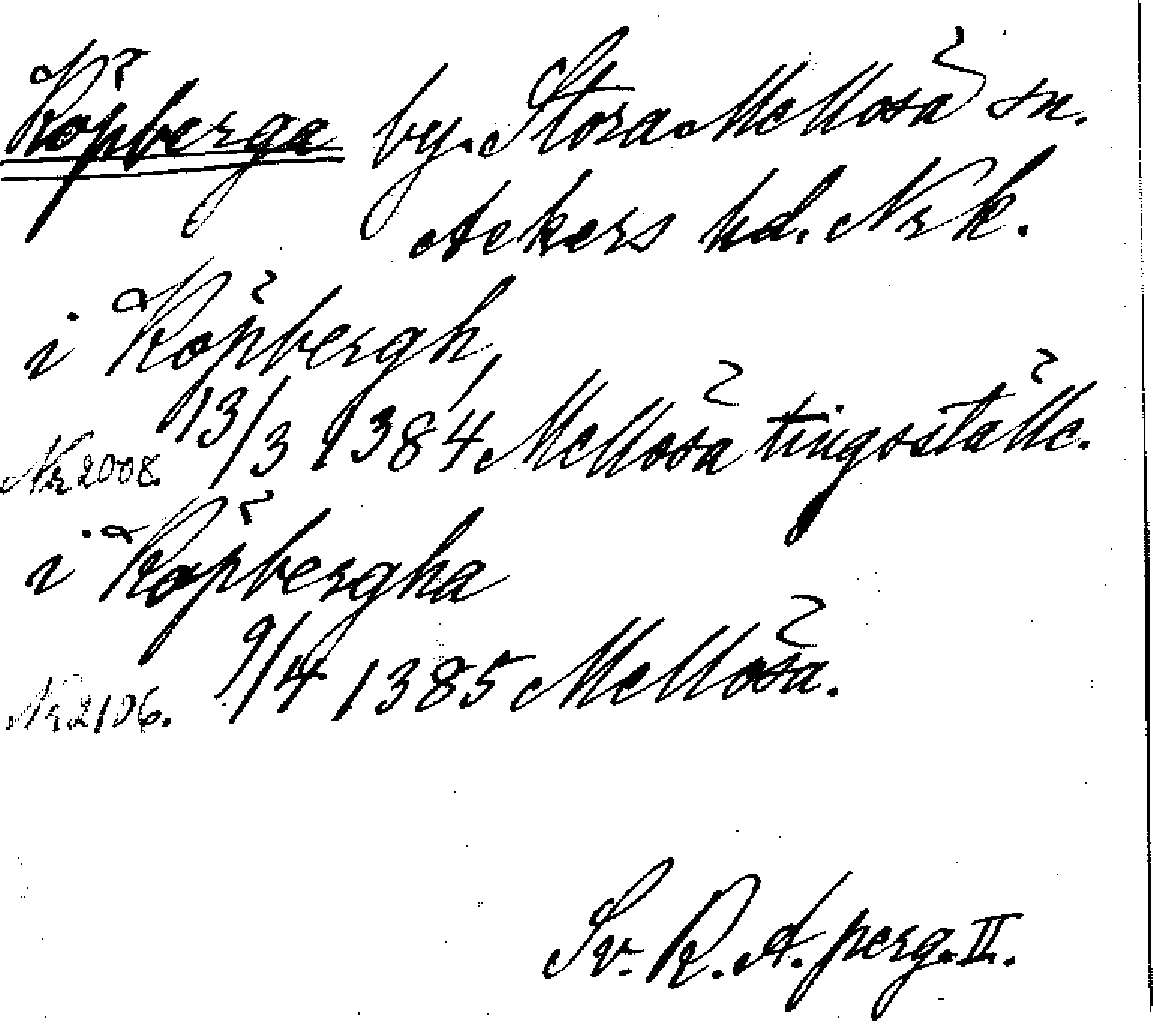 Köpberga by. Stora Mellösa sn.
Askers hd. Nrk.
i Köpbergh,
Nr 2008. 13/3 1384 Mellösa tingställe.
i Köpbergha
Nr 2106. 9/4 1385 Mellösa.
Sv. R. A. perg. II.